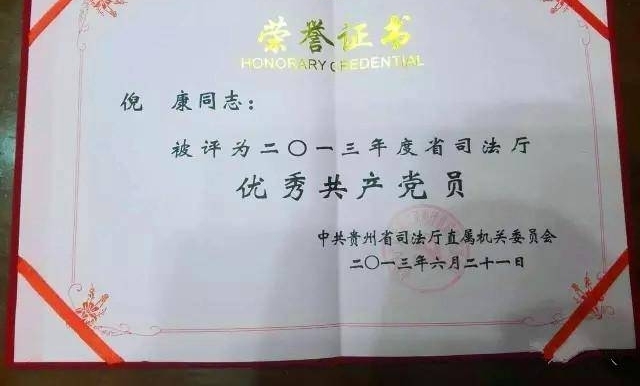 荣誉证书
HONORARY CREDENTIAL
倪 康同志：
被评为二〇一三年度省司法厅
优秀共产党员
中共贵州省司法厅直属机关委员会
二〇一三年六月二十一日